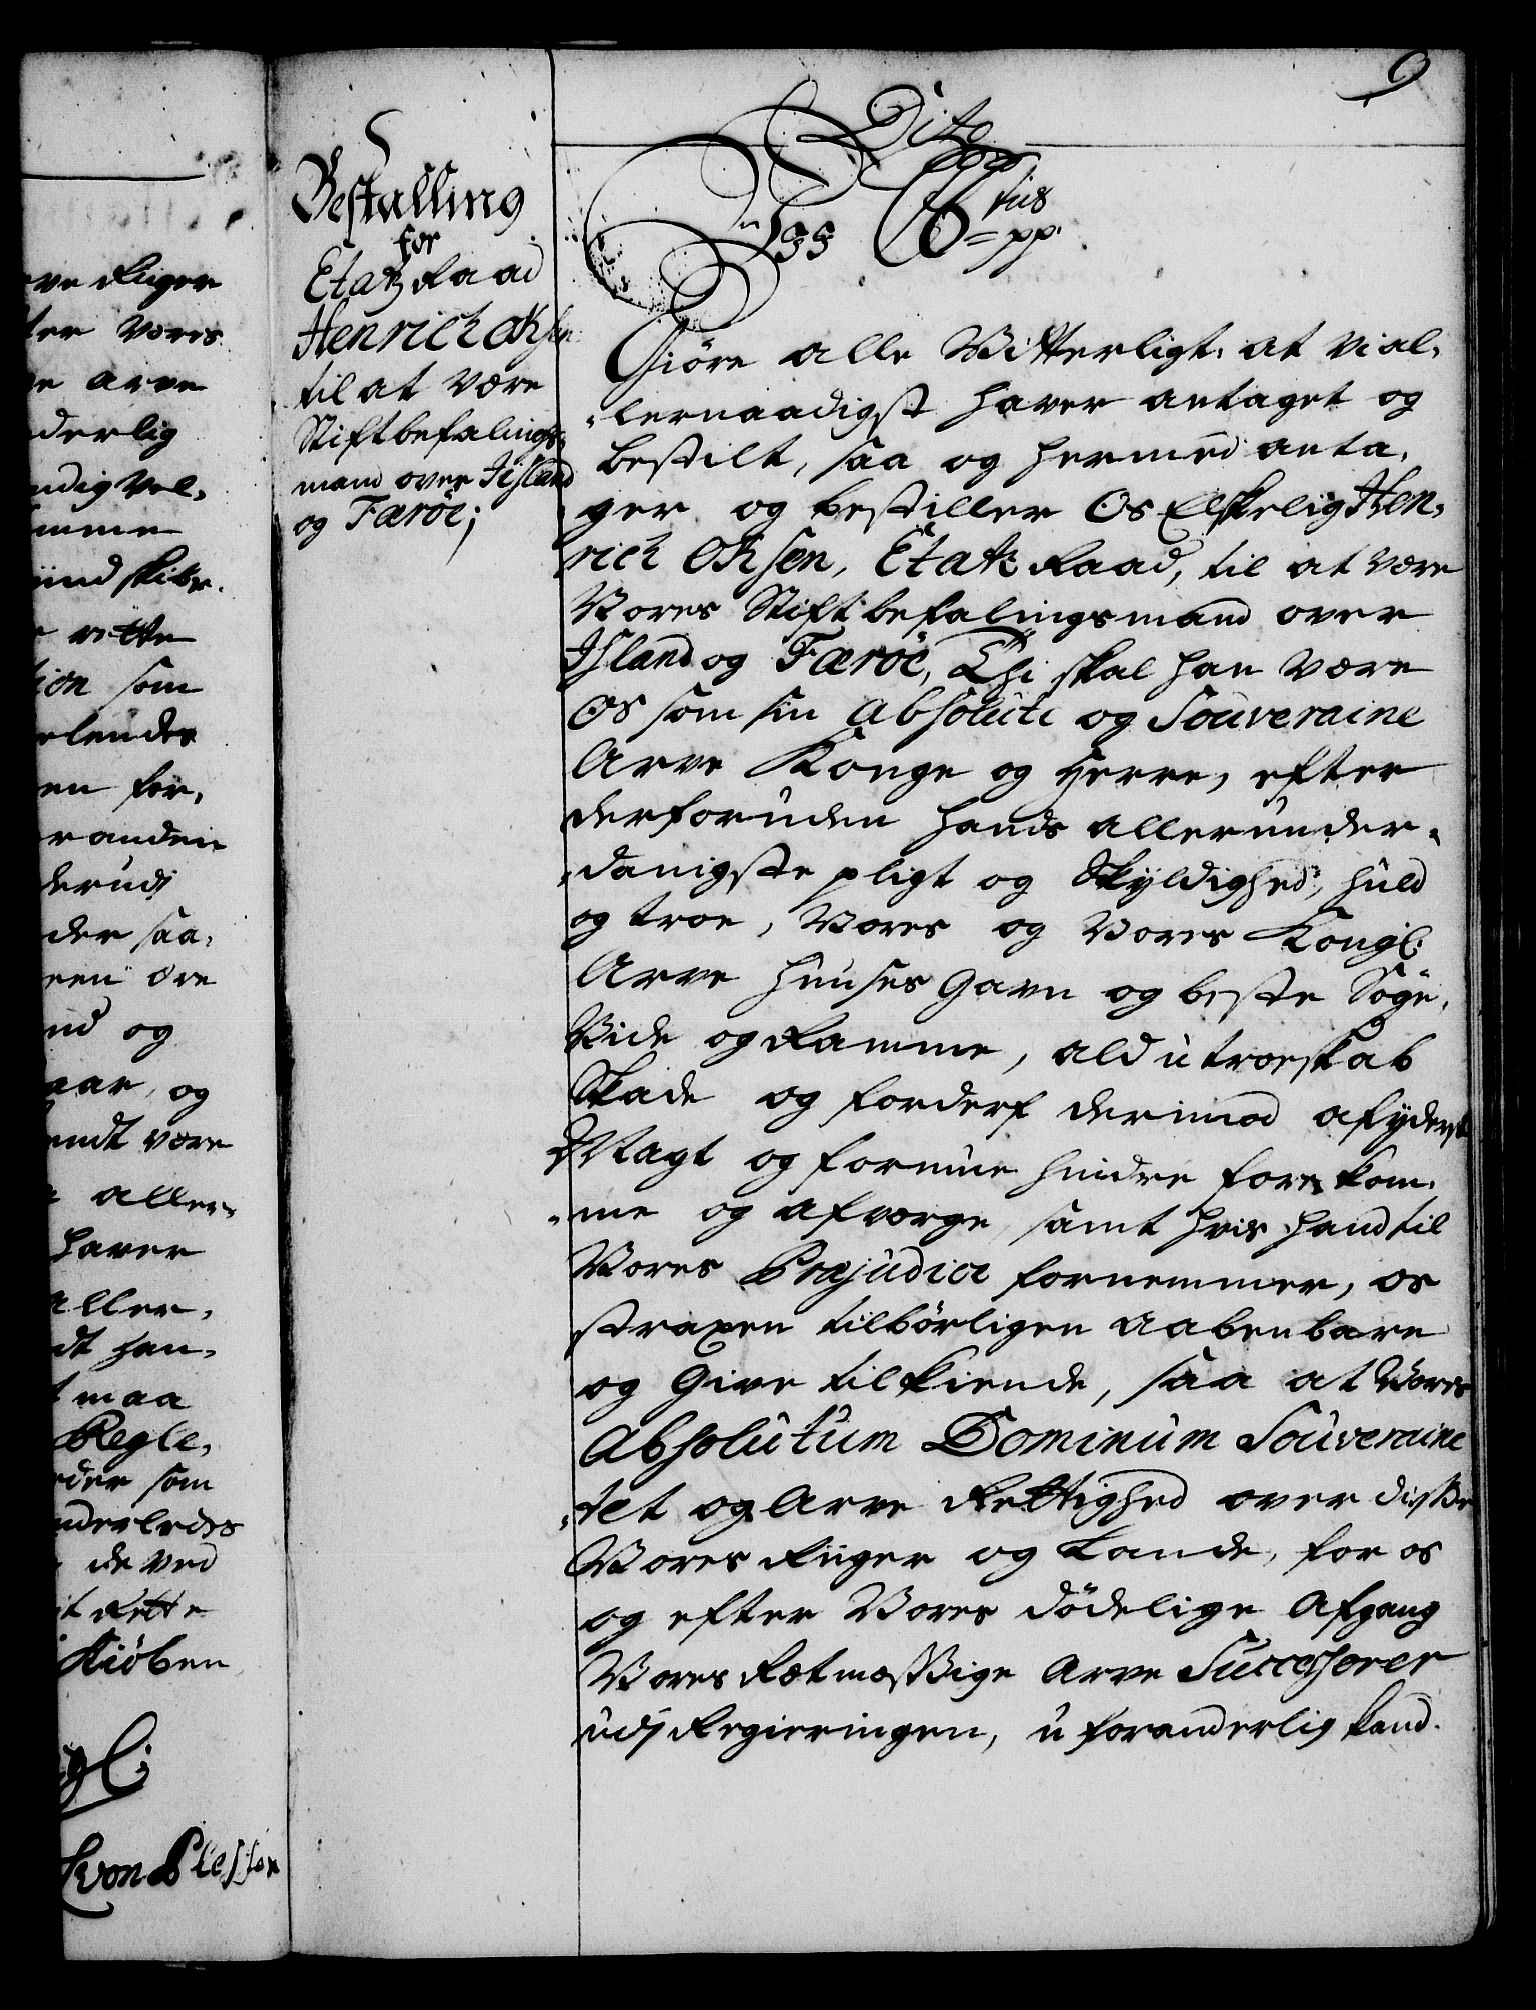 9
Dito
Wii Chr: 6tus pp.
Bestalling
for
Etatz Raad
Henrich Oksen
til at være
Stiftbefalings
mand over Iisland
og Færöe;
Giöre alle Vitterligt, at vi al,
lernaadigst hafver antaget og
bestilt, saa og hermed anta,
ger og bestiller Os Elskelig Hen,
rich Oksen, Etatz Raad, til at være
Vores Stiftbefalingsmand over
Island og Færöe, Thi skal han være
Os som sin absolute og Souveraine
Arve Konge og Herre, efter
derforuden hands allerunder,
danigste pligt og Skyldighed, huld
og troe, Vores og Vores Kongl:
Arve Huuses Gavn og beste Söge,
Vide og Ramme, ald utroeskab
Skade og forderf derimod af yderste
Magt og formue hindre forekom,
me og afværge, samt hvis hand til
Vores Præjudice fornemmer, os
straxen tilbörligen aabenbare
og Give tilkiende, saa at Vores
Absolutum Dominum Souveraine
tet og Arve Rettighed over disse
Vores Riiger og Lande, for os
og efter Vores dödelige Afgang
Vores Retmæssige Arve Successorer
udj Regieringen, uforanderlig kand
ve Riiger
ter Vores
e arve
derlig
ndig vel,
mme
iind skibe.
rette
ion som
elendes
en for,
randen
derudj
der saa,
een öre
nd og
aar, og
endt være
aller,
haver
aller,
dt han,
t maa
Regle,
der som
nderledes
de ved
it Rette
Kiöben
gl:
C von Plessen